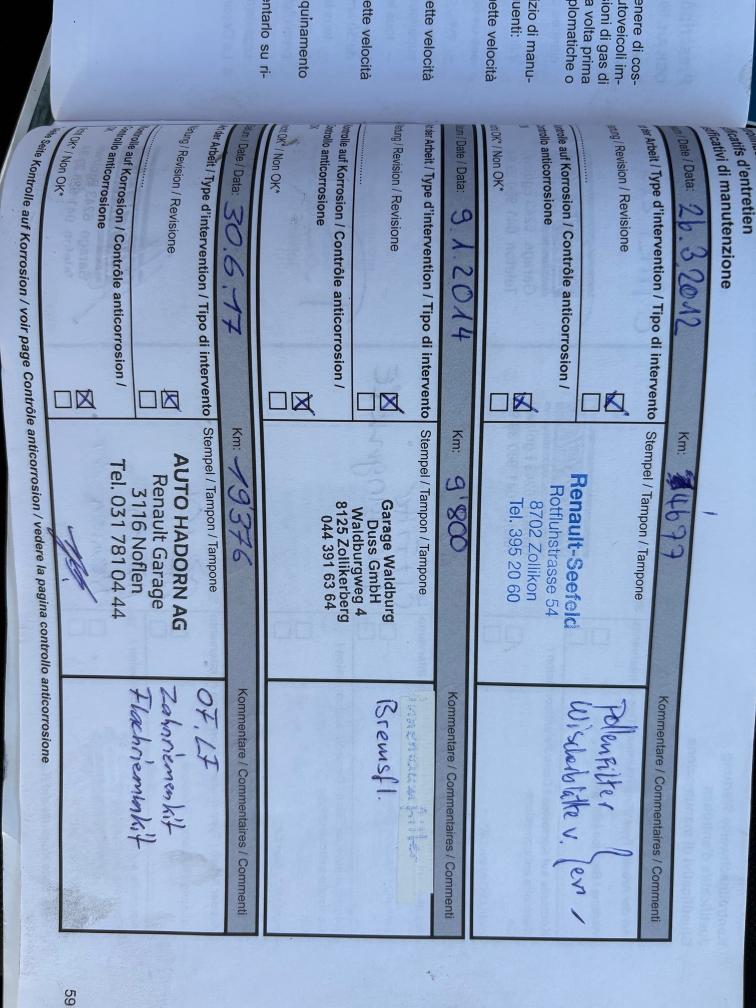 enere di cos-
utoveicoli im-
ioni di gas di
a volta prima
plomatiche o
izio di manu-
uenti:
ette velocità
ette velocità
ette velocità
quinamento
entarlo su ri-
icatifs d'entretien
ificativi di manutenzione
/ Date / Data: 26.3.2012 Km: 4677
Kommentare / Commentaires / Commenti
der Arbeit / Type d'intervention / Tipo di intervento
tung / Revision / Revisione
ntrolle auf Korrosion / Contrôle anticorrosion /
ntrollo anticorrosione
OK* / Non OK*
Stempel / Tampon / Tampone
Renault-Seefeld
Rotfluhstrasse 54
8702 Zollikon
Tel. 395 20 60
Pollenfilter
Wischerblätter v.
um / Date / Data: 9.1.2014 Km: 9'800
Kommentare / Commentaires / Commenti
der Arbeit / Type d'intervention / Tipo di intervento
tung / Revision / Revisione
ntrolle auf Korrosion / Contrôle anticorrosion /
ntrollo anticorrosione
OK* / Non OK*
Stempel / Tampon / Tampone
Garage Waldburg
Duss GmbH
Waldburgweg 4
8125 Zollikerberg
044 391 63 64
Bremsfl.
um / Date / Data: 30.6.17 Km: 19376
Kommentare / Commentaires / Commenti
der Arbeit / Type d'intervention / Tipo di intervento
tung / Revision / Revisione
ntrolle auf Korrosion / Contrôle anticorrosion /
ntrollo anticorrosione
OK* / Non OK*
Stempel / Tampon / Tampone
AUTO HADORN AG
Renault Garage
3116 Noflen
Tel. 031 781 04 44
OF, LF
Zahnriemenkit
Flachriemenkit
Seite Kontrolle auf Korrosion / voir page Contrôle anticorrosion / vedere la pagina controllo anticorrosione
59